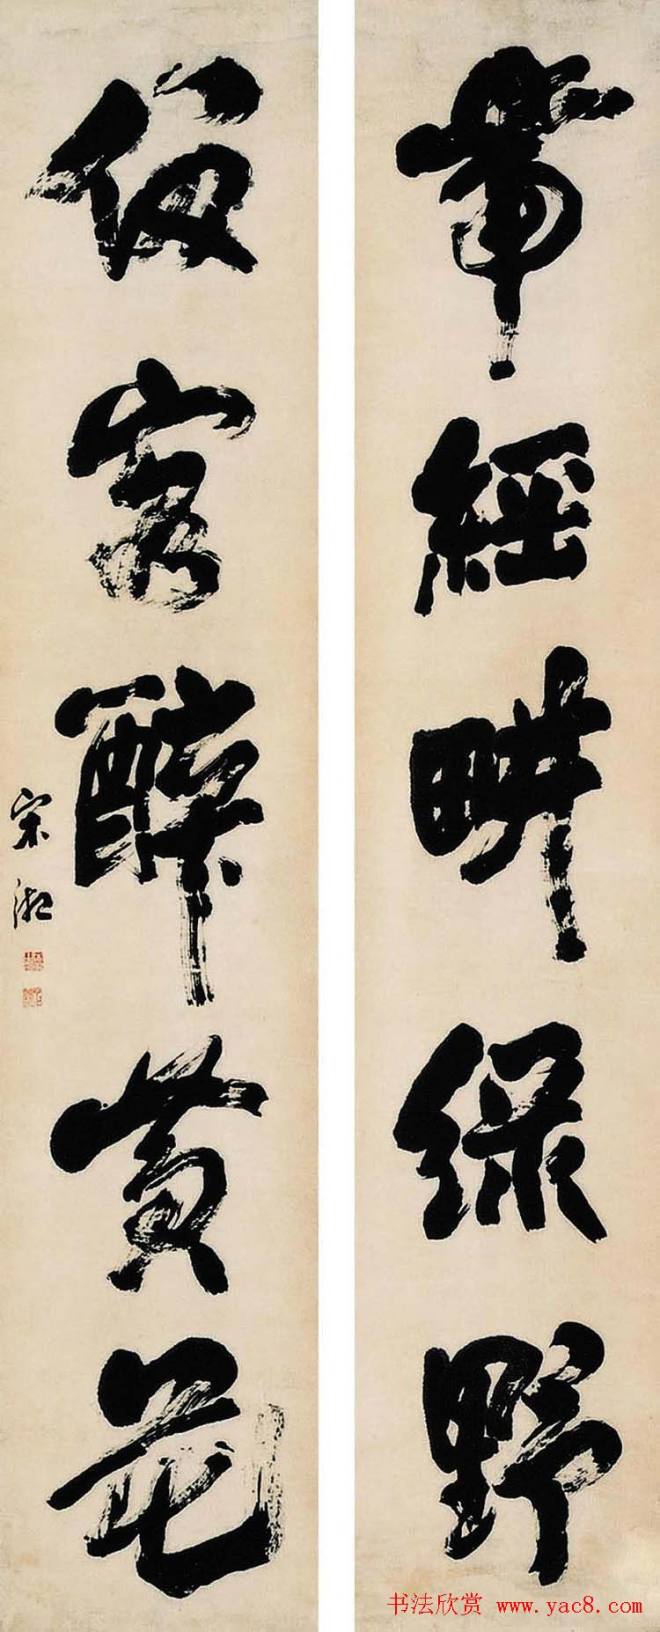 帶經畊綠野
客醉黄花
宋湘
书法欣赏 www.yac8.com